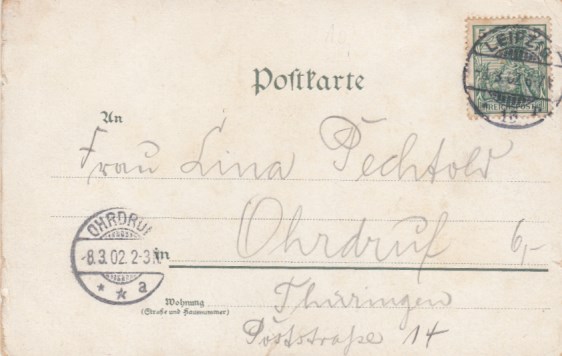 5
LEIPZIG
REICHSPOST
Postkarte
An
Frau Lina Pechtold
OHRDRUF
-8.3.02.2-3N
* * a
in
Ohrdruf
6,-
Wohnung
(Straße und Hausnummer)
Thüringen
Poststraße 14